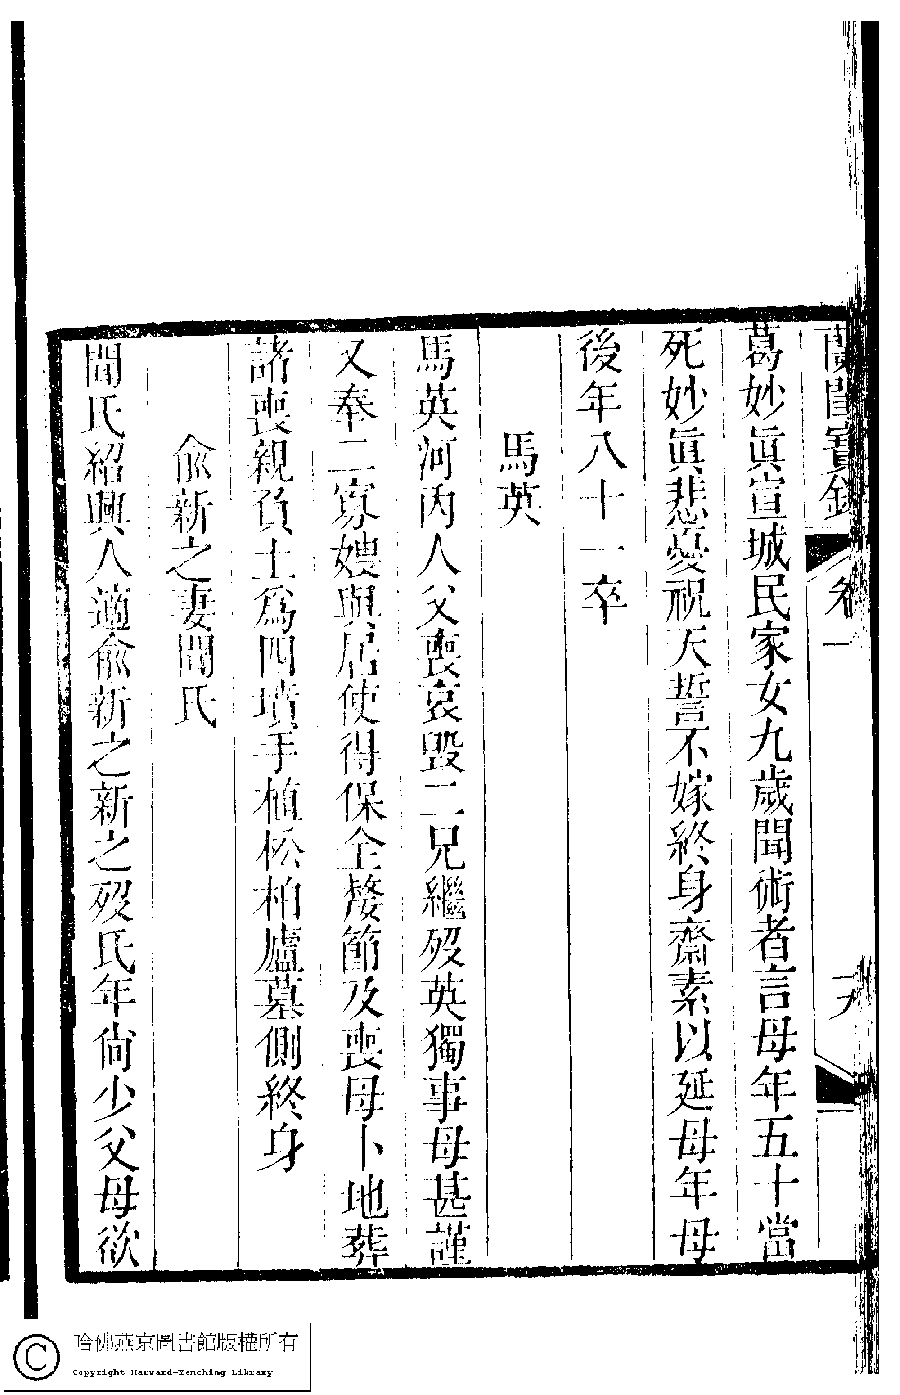 蘭閨寶錄 卷一
葛妙眞宣城民家女九歲聞術者言母年五十當
死妙眞悲憂祝天誓不嫁終身齋素以延母年母
後年八十一卒
馬英
馬英河內人父喪哀毀二兄繼歿英獨事母甚謹
又奉二寡嫂與居使得保全嫠節及喪母卜地葬
諸喪親負土爲四墳手植松柏廬墓側終身
俞新之妻聞氏
聞氏紹興人適俞新之新之歿氏年尙少父母欲
哈佛燕京圖書館版權所有
Copyright Harvard-Yenching Library